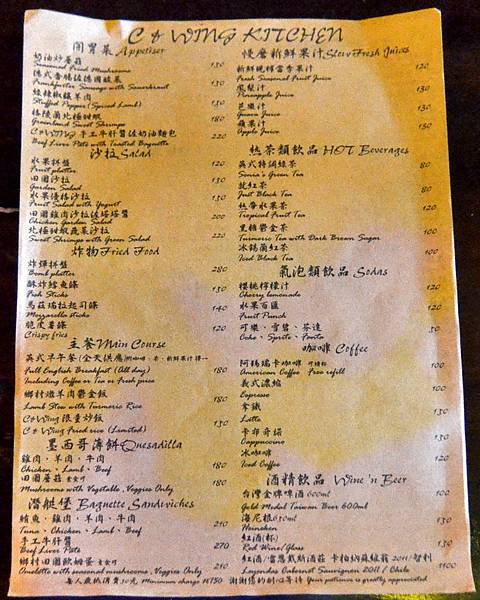 C & WING KITCHEN
開胃菜 Appetiser
奶油炒蘑菇
Seasoned Fried Mushrooms 130
德式香腸佐德國酸菜
Frankfurter Sausage with Sauerkraut 130
綠辣椒鑲羊肉
Stuffed Pepper (Spiced Lamb) 130
格陵蘭北極甜蝦
Greenland Sweet Shrimps 180
C&WING 手工牛肝醬佐奶油麵包
Beef Liver Pate with Toasted Baguette 220
沙拉 Salad
水果拼盤
Fruit platter 180
田園沙拉
Garden Salad 130
水果優格沙拉
Fruit Salad with Yogurt 130
田園雞肉沙拉佐塔塔醬
Chicken Garden Salad 200
北極甜蝦蔬菜沙拉
Sweet Shrimps with Green Salad 220
炸物 Fried Food
炸彈拼盤
Bomb platter 280
酥炸鱈魚條
Fish Sticks 130
馬茲瑞拉起司條
Mozzarella sticks 140
脆皮薯條
Crispy fries 120
主餐 Main Course
英式早午餐(全天供應)
Full English Breakfast (All day) 180
Including Coffee or Tea or Fresh juice
鄉村燉羊肉鬱金飯
Lamb Stew with Turmeric Rice 180
C&Wing 限量炒飯
C & Wing Fried rice (Limited) 130
墨西哥薄餅 Quesadilla
雞肉、羊肉、牛肉
Chicken、Lamb、Beef 180
田園蘑菇 素食可
Mushrooms with Vegetable, Veggies Only 180
潛艇堡 Baguette Sandwiches
鮪魚、雞肉、羊肉、牛肉
Tuna、Chicken、Lamb、Beef 210
手工牛肝醬
Beef Liver Pate 270
鄉村田園歐姆蛋 素食可
Omelette with seasonal mushrooms, Veggies Only 210
慢磨新鮮果汁 Slow Fresh Juices
新鮮現榨當季果汁 120
Fresh Seasonal Fruit Juice
鳳梨汁 130
Pineapple Juice
芭樂汁 130
Guava Juice
蘋果汁 130
Apple Juice
熱茶類飲品 HOT Beverages
英式特調綠茶 80
Sonia's Green Tea
就紅茶 80
Just Black Tea
熱帶水果茶 120
Tropical Fruit Tea
黑糖鬱金茶 100
Turmeric Tea with Dark Brown Sugar
冰錫蘭紅茶 100
Iced Black Tea
氣泡類飲品 Sodas
櫻桃檸檬汁 130
Cherry lemonade
水果百匯 120
Fruit Punch
可樂、雪碧、芬達 50
Coke、Sprite、Fanta
咖啡 Coffee
阿瑪瑞卡咖啡 可續杯 100
American Coffee Free refill
義式濃縮 100
Espresso
拿鐵 130
Latte
卡布奇諾 130
Cappuccino
冰咖啡 100
Iced Coffee
酒精飲品 Wine 'n Beer
台灣金牌啤酒 600ml 100
Gold Medal Taiwan Beer 600ml
海尼根 650ml 130
Heineken
紅酒(杯) 130
Red Wine/Glass
紅酒/雷憨戴斯酒莊 卡柏納蘇維翁 2011/智利
Leyendas Cabernet Sauvignon 2011 / Chile 1100
每人最低消費50元 Minimum charge NT50 謝謝您的耐心等待 Your patience is greatly appreciated